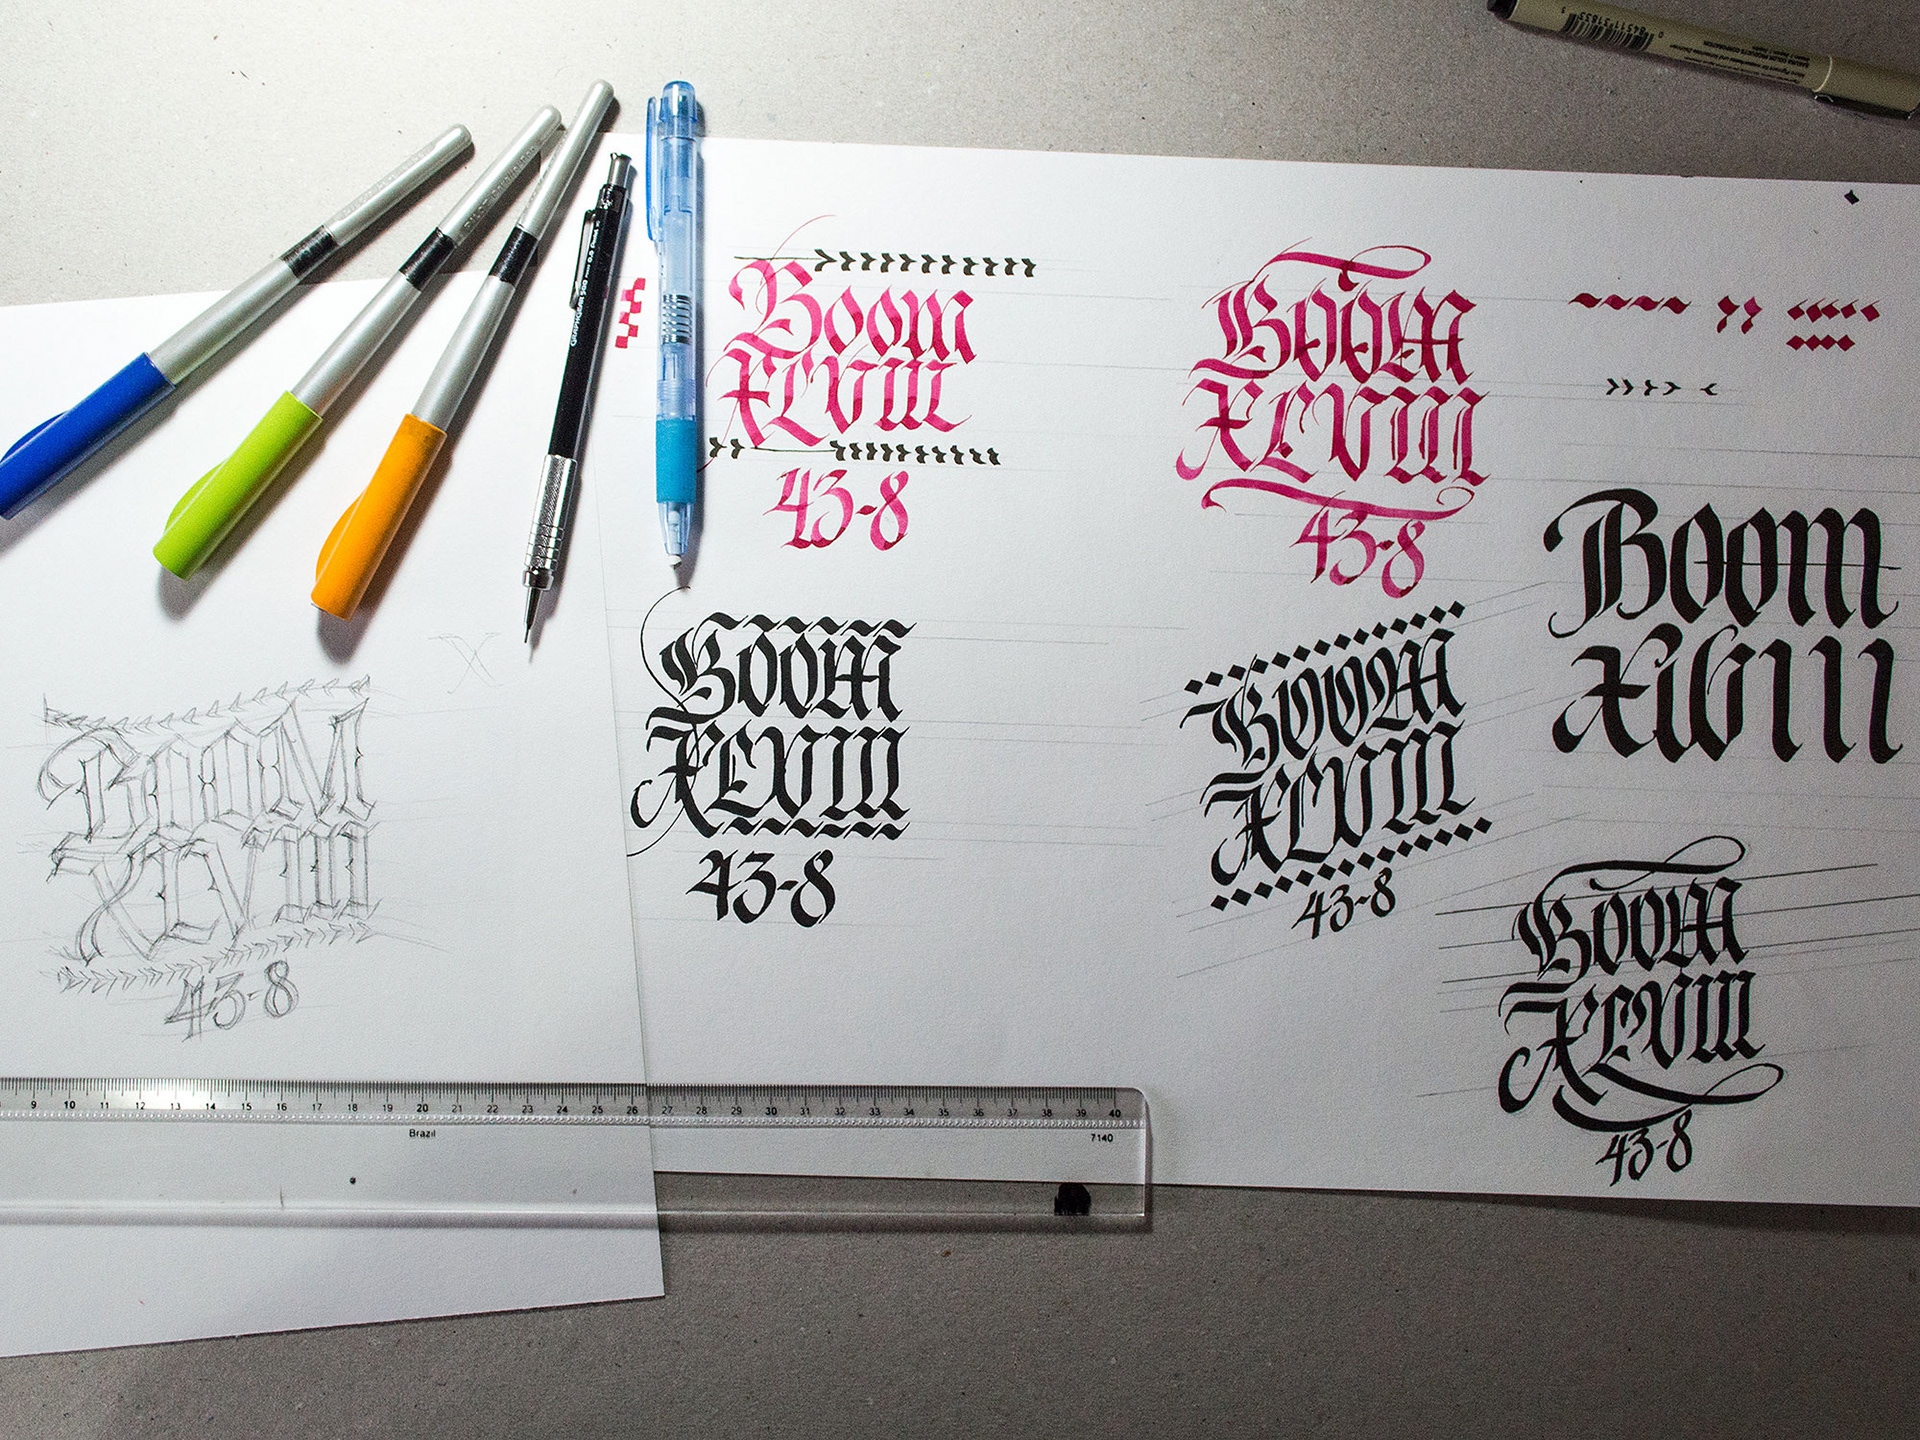 Boom
XLVIII
43-8
Boom
XLVIII
43-8
Boom
Xlviii
BOOM
XLVIII
43-8
Boom
XLVIII
43-8
Boom
XLVIII
43-8
Boom
XLVIII
43-8
X
GRAPHGEAR 500
Pentel
PILOT
9 10 11 12 13 14 15 16 17 18 19 20 21 22 23 24 25 26 27 28 29 30 31 32 33 34 35 36 37 38 39 40
Brazil
7140
COLOR PRODUCTS CORPORATION